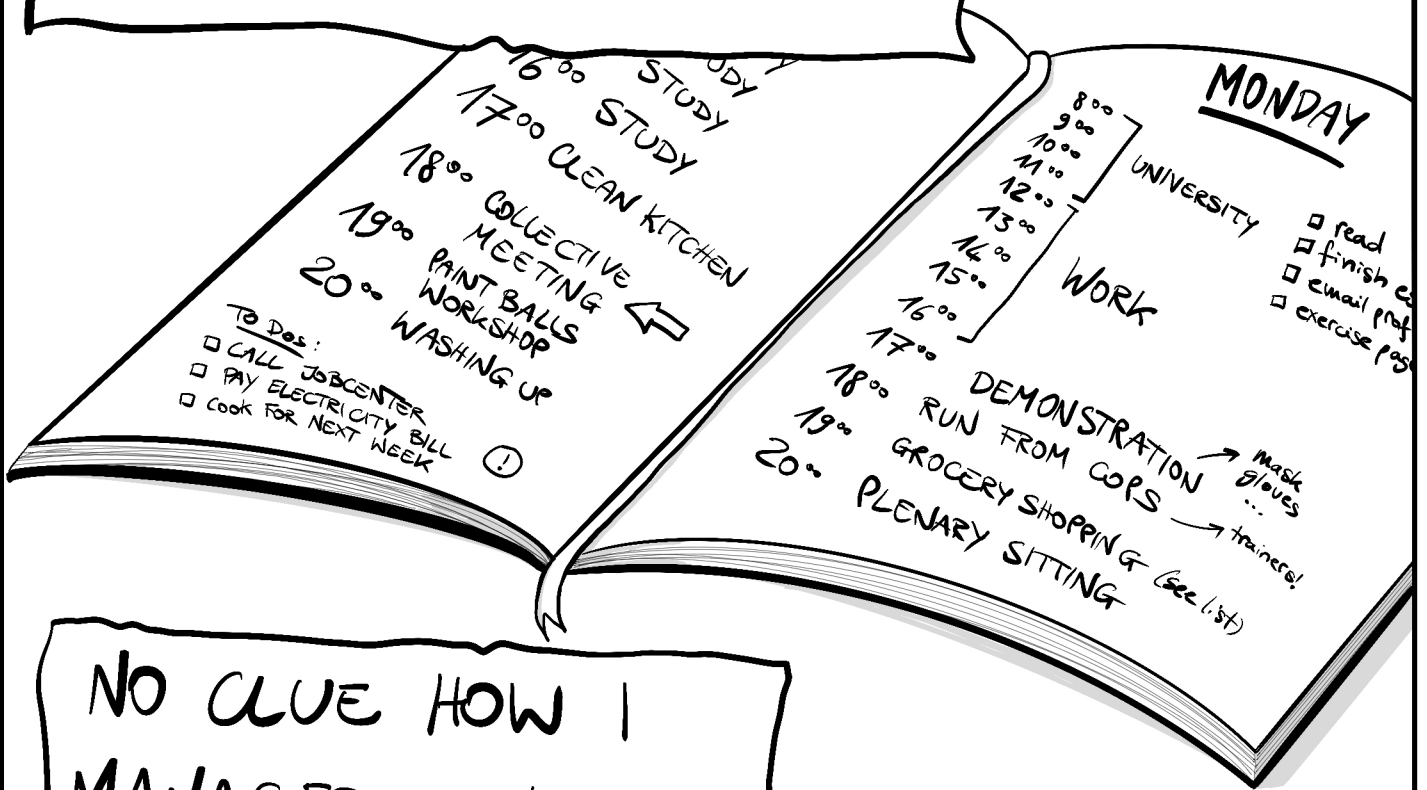 STUDY
16⁰⁰ STUDY
17⁰⁰ CLEAN KITCHEN
18⁰⁰ COLLECTIVE
MEETING
19⁰⁰ PAINT BALLS
WORKSHOP
20⁰⁰ WASHING UP
TO DOS:
CALL JOBCENTER
PAY ELECTRICITY BILL
COOK FOR NEXT
WEEK
!
MONDAY
8⁰⁰
9⁰⁰
10⁰⁰
11⁰⁰
12⁰⁰
UNIVERSITY
13⁰⁰
14⁰⁰
15⁰⁰
16⁰⁰
WORK
read
finish
email prof
exercise
17⁰⁰ DEMONSTRATION → mask
gloves
...
18⁰⁰ RUN FROM COPS → trainers!
19⁰⁰ GROCERY SHOPPING (see list)
20⁰⁰ PLENARY SITTING
NO CLUE HOW I